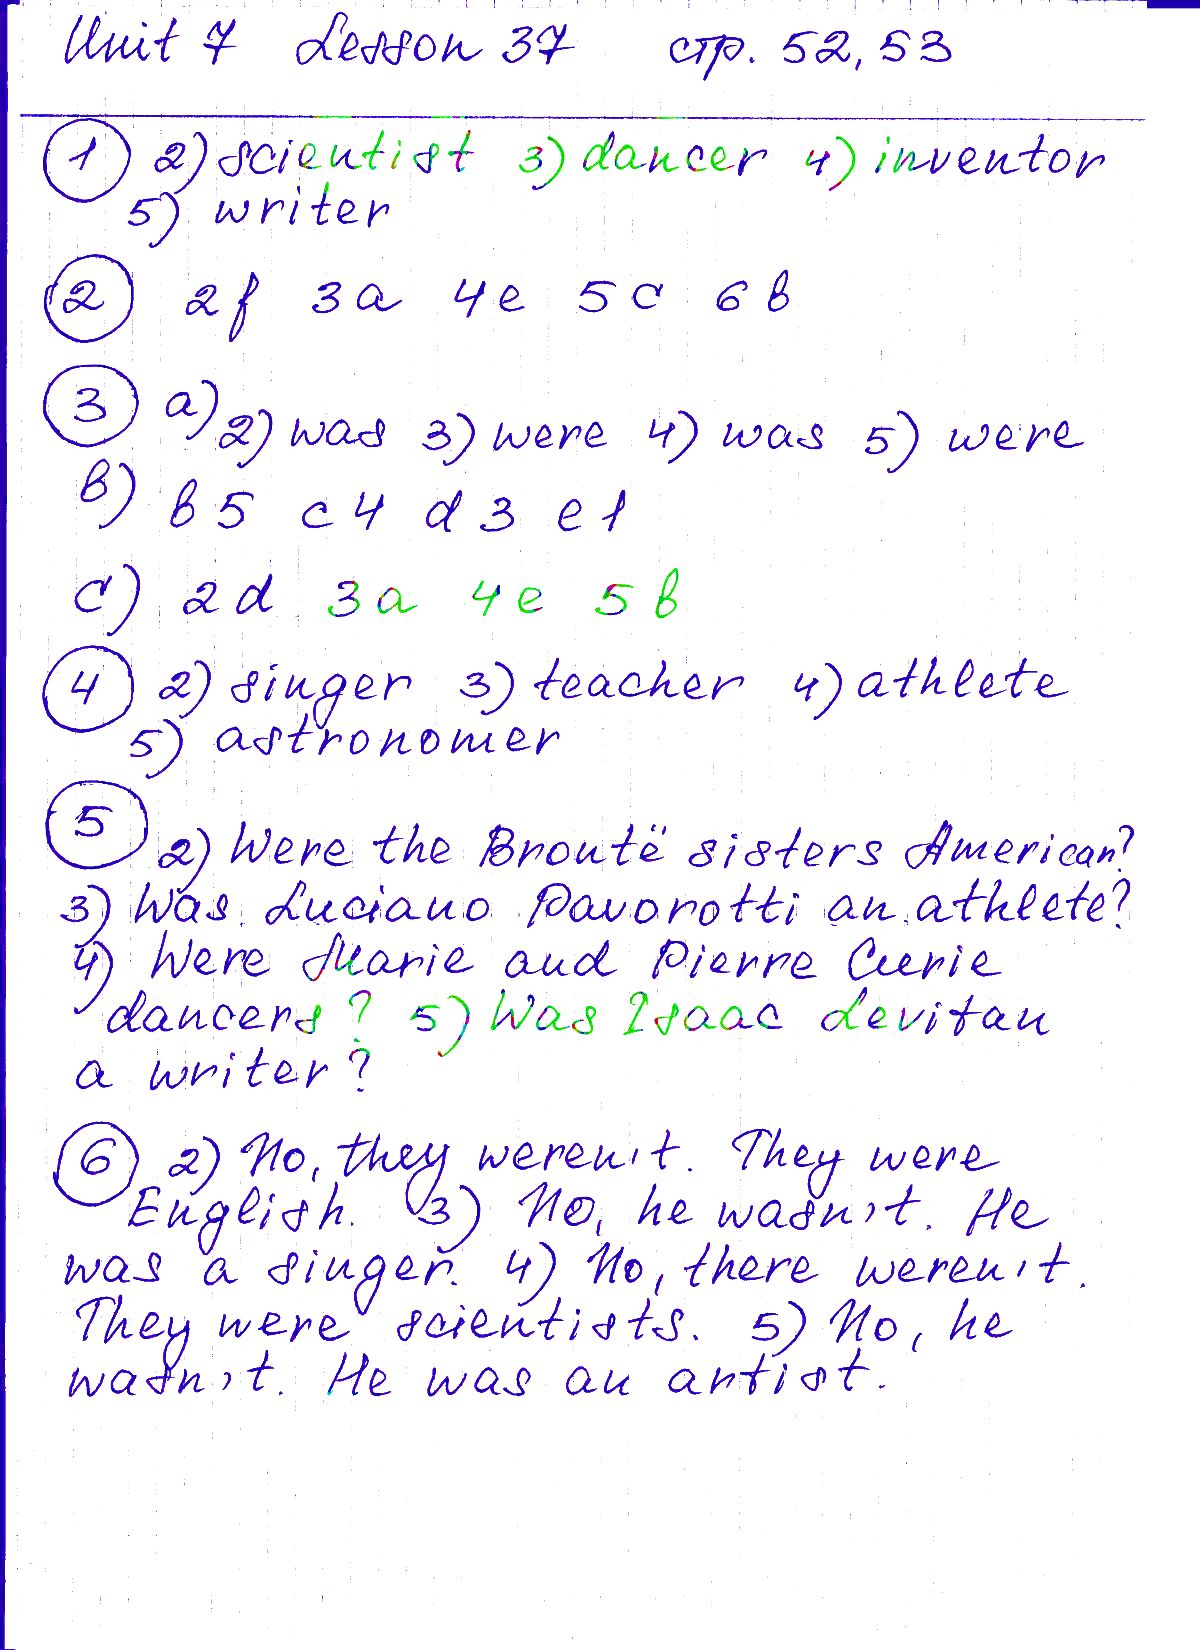 Unit 7 Lesson 37 стр. 52, 53
1 2) scientist 3) dancer 4) inventor
5) writer
2 2f 3a 4e 5c 6b
3 a) 2) was 3) were 4) was 5) were
b) b5 c4 d3 e1
c) 2d 3a 4e 5b
4 2) singer 3) teacher 4) athlete
5) astronomer
5 2) Were the Brontë sisters American?
3) Was Luciano Pavorotti an athlete?
4) Were Marie and Pierre Curie
dancers? 5) Was Isaac Levitan
a writer?
6 2) No, they weren't. They were
English. 3) No, he wasn't. He
was a singer. 4) No, there weren't.
They were scientists. 5) No, he
wasn't. He was an artist.